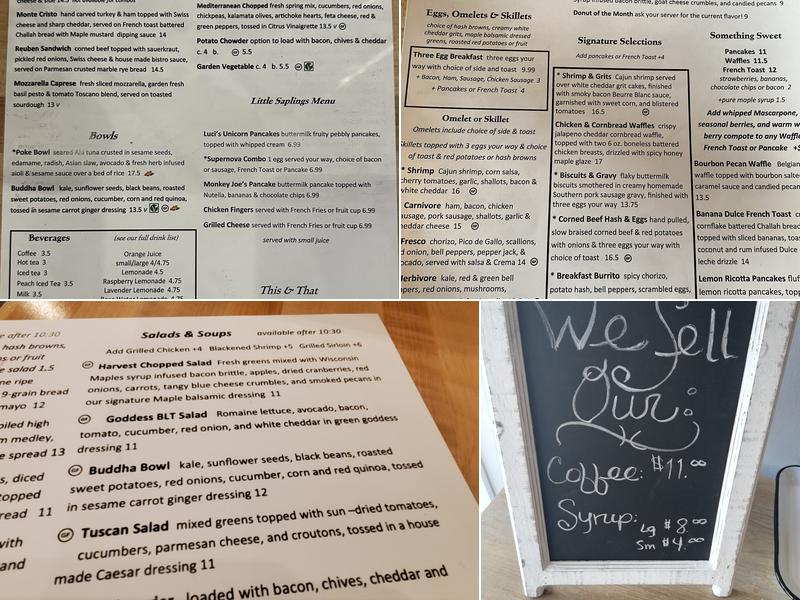 Monte Cristo hand carved turkey & ham topped with Swiss
cheese and sharp cheddar, served on French toast battered
Challah bread with Maple mustard dipping sauce 14
Reuben Sandwich corned beef topped with sauerkraut,
pickled red onions, Swiss cheese & house made bistro sauce,
served on Pumpernickel marble rye bread 14.5
Mozzarella Caprese fresh sliced mozzarella, garden fresh
basil pesto & tomato Toscano blend, served on toasted
sourdough 13 v
Bowls
*Poke Bowl seared Ahi tuna crusted in sesame seeds,
edamame, radish, Asian slaw, avocado & fresh herb infused
aioli & sesame sauce over a bed of rice 17.5
Buddha Bowl kale, sunflower seeds, black beans, roasted
sweet potatoes, red onions, cucumber, corn and red quinoa,
tossed in sesame carrot ginger dressing 13.5 v GF
Beverages (see our full drink list)
Coffee 3.5
Hot tea 3
Iced tea 3
Peach Iced Tea 3.5
Milk 3.5
Orange Juice
small/large 4/4.75
Lemonade 4.5
Raspberry Lemonade 4.75
Lavender Lemonade 4.75
Mediterranean Chopped fresh spring mix, cucumbers, red onions,
chickpeas, kalamata olives, artichoke hearts, feta cheese, red &
green peppers, tossed in Citrus Vinaigrette 13.5 v GF
Potato Chowder option to load with bacon, chives & cheddar
c. 4 b. GF 5.5
Garden Vegetable c. 4 b. 5.5 v GF
Little Saplings Menu
Luci's Unicorn Pancakes buttermilk fruity pebbly pancakes,
topped with whipped cream 6.99
*Supernova Combo 1 egg served your way, choice of bacon
or sausage, French Toast or Pancake 6.99
Monkey Joe's Pancake buttermilk pancake topped with
Nutella, bananas & chocolate chips 6.99
Chicken Fingers served with French Fries or fruit cup 6.99
Grilled Cheese served with French Fries or fruit cup 6.99
served with small juice
This & That
Eggs, Omelets & Skillets
choice of hash browns, creamy white
cheddar grits, maple balsamic dressed
greens, roasted red potatoes or fruit
Three Egg Breakfast three eggs your
way with choice of side and toast 9.99
+ Bacon, Ham, Sausage, Chicken Sausage 3
+ Pancakes or French Toast 4
Omelet or Skillet
Omelets include choice of side & toast
Skillets topped with 3 eggs your way & choice
of toast & red potatoes or hash browns
* Shrimp Cajun shrimp, corn salsa,
cherry tomatoes, garlic, shallots, bacon &
white cheddar 16 GF
Carnivore ham, bacon, chicken
sausage, pork sausage, shallots, garlic &
cheddar cheese 15 GF
Fresco chorizo, Pico de Gallo, scallions,
onion, bell peppers, pepper jack, &
served with salsa & Crema 14 GF
Herbivore kale, red & green bell
peppers, red onions, mushrooms,
Signature Selections
Add pancakes or French Toast +4
* Shrimp & Grits Cajun shrimp served
over white cheddar grit cakes, finished
with smoky bacon Beurre Blanc sauce,
garnished with sweet corn, and blistered
tomatoes 16.5 GF
Chicken & Cornbread Waffles crispy
jalapeno cheddar cornbread waffle,
topped with two 6 oz. boneless battered
chicken breasts, drizzled with spicy honey
maple glaze 17
* Biscuits & Gravy flaky buttermilk
biscuits smothered in creamy homemade
Southern pork sausage gravy, finished with
three eggs your way 13.75
* Corned Beef Hash & Eggs hand pulled,
slow braised corned beef & red potatoes
with onions & three eggs your way with
choice of toast 16.5 GF
* Breakfast Burrito spicy chorizo,
potato hash, bell peppers, scrambled eggs,
bacon, goat cheese crumbles, and candied pecans 9
Donut of the Month ask your server for the current flavor! 9
Something Sweet
Pancakes 11
Waffles 11.5
French Toast 12
strawberries, bananas,
chocolate chips or bacon 2
+pure maple syrup 1.5
Add whipped Mascarpone,
seasonal berries, and warm
berry compote to any Waffle
French Toast or Pancake
Bourbon Pecan Waffle Belgian
waffle topped with bourbon salted
caramel sauce and candied pecans
13.5
Banana Dulce French Toast
cornflake battered Challah bread
topped with sliced bananas,
coconut and rum infused Dulce
leche drizzle 14
Lemon Ricotta Pancakes
lemon ricotta pancakes, topped
after 10:30
hash browns,
or fruit
salad 1.5
ripe
9-grain bread
mayo 12
piled high
medley,
spread 13
diced
topped
bread 11
with
and
Salads & Soups available after 10:30
Add Grilled Chicken +4 Blackened Shrimp +5 Grilled Sirloin +6
GF Harvest Chopped Salad Fresh greens mixed with Wisconsin
Maples syrup infused bacon brittle, apples, dried cranberries, red
onions, carrots, tangy blue cheese crumbles, and smoked pecans in
our signature Maple balsamic dressing 11
GF Goddess BLT Salad Romaine lettuce, avocado, bacon,
tomato, cucumber, red onion, and white cheddar in green goddess
dressing 11
GF Buddha Bowl kale, sunflower seeds, black beans, roasted
sweet potatoes, red onions, cucumber, corn and red quinoa, tossed
in sesame carrot ginger dressing 12
GF Tuscan Salad mixed greens topped with sun –dried tomatoes,
cucumbers, parmesan cheese, and croutons, tossed in a house
made Caesar dressing 11
loaded with bacon, chives, cheddar and
We Sell
Our:
Coffee: $11.00
Syrup: Lg $8.00
Sm $4.00